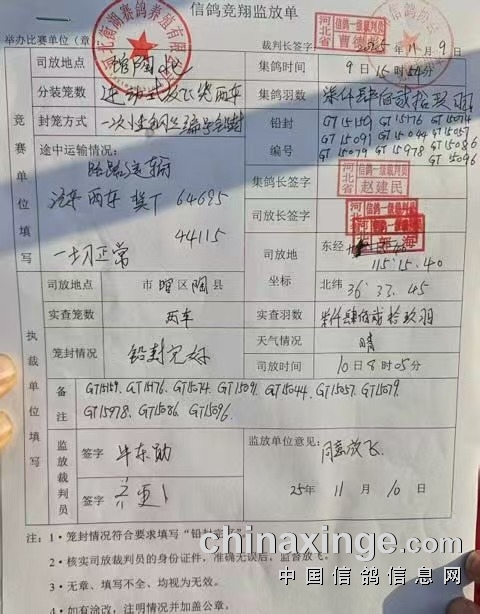 信鸽竞翔监放单
举办比赛单位（章
裁判长签字
2025年11月9日
河北省
信鸽一级裁判员
竞赛单位填写
司放地点
馆陶
集鸽时间
9日15时
分装笼数
两车
集鸽羽数
柒仟肆佰贰拾玖羽
封笼方式
一次性
铅封
编号
GT15159 GT15176 GT15074
GT15091 GT15044 GT15057
GT15079 GT15978 GT15086
GT15096
途中运输情况：
汽车两车 冀T 64695
44115
一切正常
集鸽长签字
河北省
信鸽一级裁判员
赵建民
司放长签字
司放地
坐标
东经
115.15.40
北纬
36.33.45
执裁单位填写
司放地点
市 馆 区 陶 县
实查笼数
两车
实查羽数
柒仟肆佰贰拾玖羽
笼封情况
铅封完好
天气情况
晴
司放时间
10日8时05分
备注
GT15159. GT15176. GT15074. GT15091. GT15044. GT15057. GT15079.
GT15978. GT15086. GT15096.
监放裁判员
签字
签字
监放单位意见：
同意放飞
25年11月10日
注：1·笼封情况符合要求填写“铅封完好”
2·核实司放裁判员的身份证件，准确无误后，监督放飞。
3·无章、填写不全、均视为无效。
4·如有涂改，注明情况并加盖公章。
chinaxinge.com
中国信鸽信息网